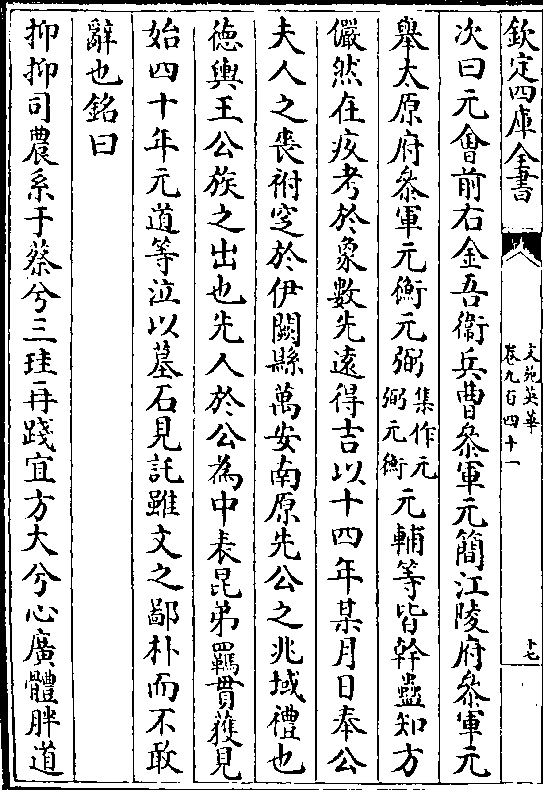 欽定四庫全書
文苑英華
卷九百四十一
十七
次曰元會前右金吾衞兵曹叅軍元簡江陵府叅軍元
舉太原府叅軍元衡元弼集作元弼元衡元輔等皆幹蠱知方
儼然在疚考於象數先遠得吉以十四年某月日奉公
夫人之喪祔窆於伊闕縣萬安南原先公之兆域禮也
德輿王公族之出也先人於公為中表昆弟羈貫獲見
始四十年元道等泣以墓石見託雖文之鄙朴而不敢
辭也銘曰
抑抑司農系于蔡兮三珪再踐宜方大兮心廣體胖道